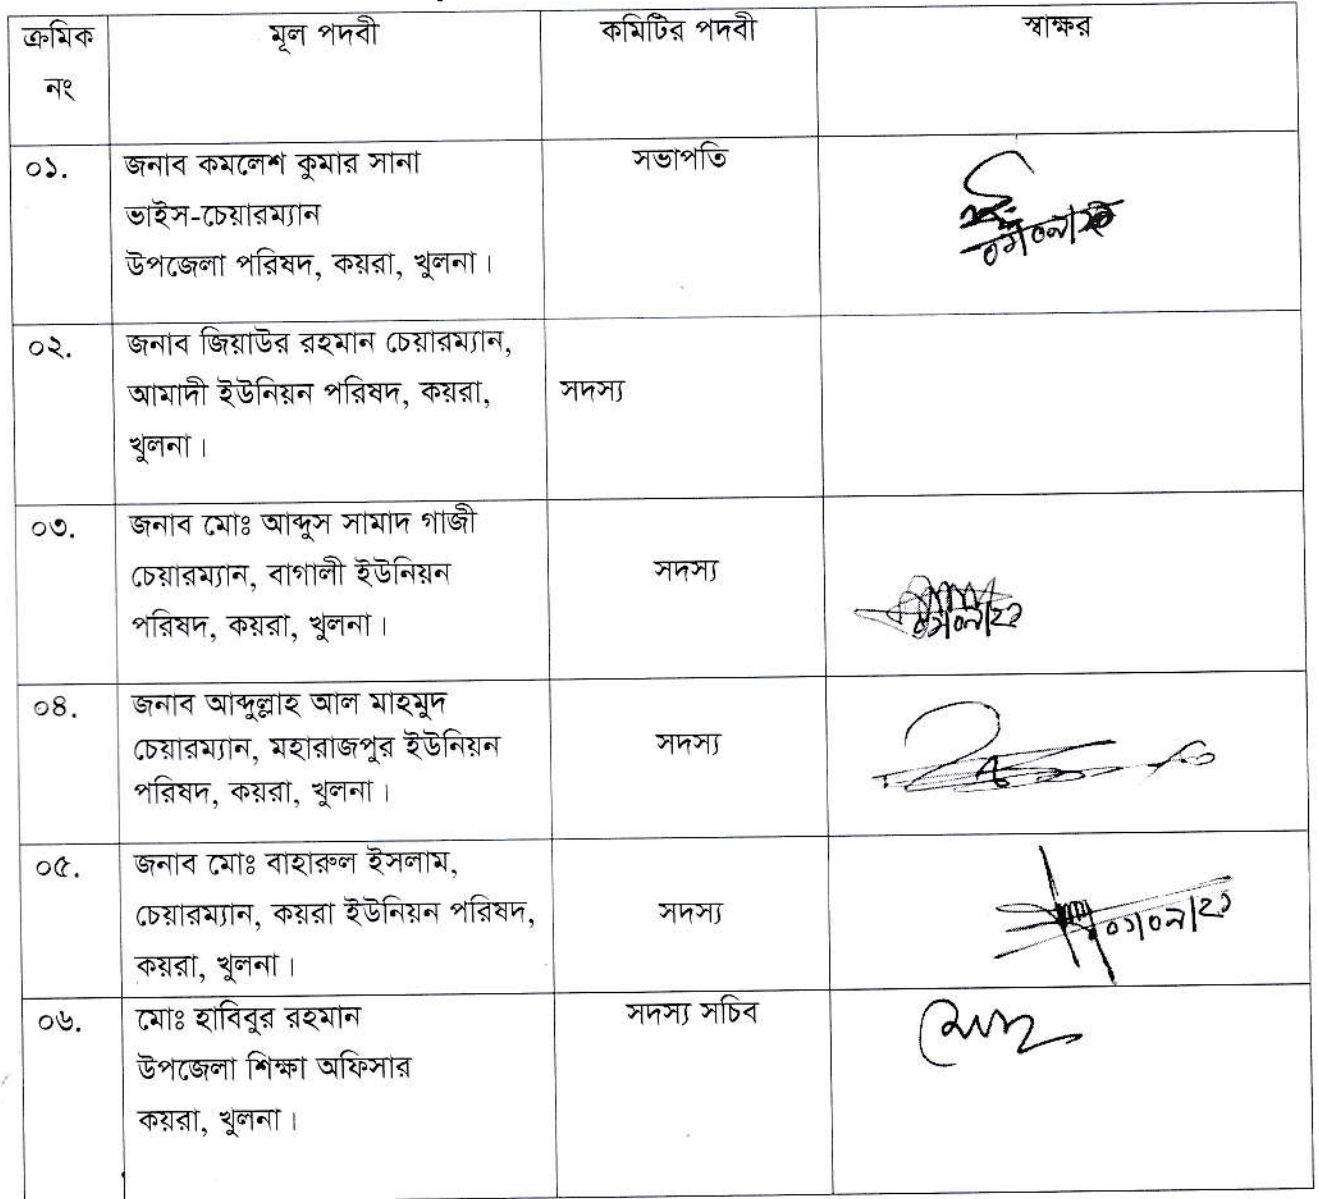 ক্রমিক নং মূল পদবী কমিটির পদবী স্বাক্ষর
০১. জনাব কমলেশ কুমার সানা সভাপতি
ভাইস-চেয়ারম্যান
উপজেলা পরিষদ, কয়রা, খুলনা।
০২. জনাব জিয়াউর রহমান চেয়ারম্যান,
আমাদী ইউনিয়ন পরিষদ, কয়রা, সদস্য
খুলনা।
০৩. জনাব মোঃ আব্দুস সামাদ গাজী
চেয়ারম্যান, বাগালী ইউনিয়ন সদস্য
পরিষদ, কয়রা, খুলনা।
০৪. জনাব আব্দুল্লাহ আল মাহমুদ
চেয়ারম্যান, মহারাজপুর ইউনিয়ন সদস্য
পরিষদ, কয়রা, খুলনা।
০৫. জনাব মোঃ বাহারুল ইসলাম,
চেয়ারম্যান, কয়রা ইউনিয়ন পরিষদ, সদস্য
কয়রা, খুলনা।
০৬. মোঃ হাবিবুর রহমান সদস্য সচিব
উপজেলা শিক্ষা অফিসার
কয়রা, খুলনা।